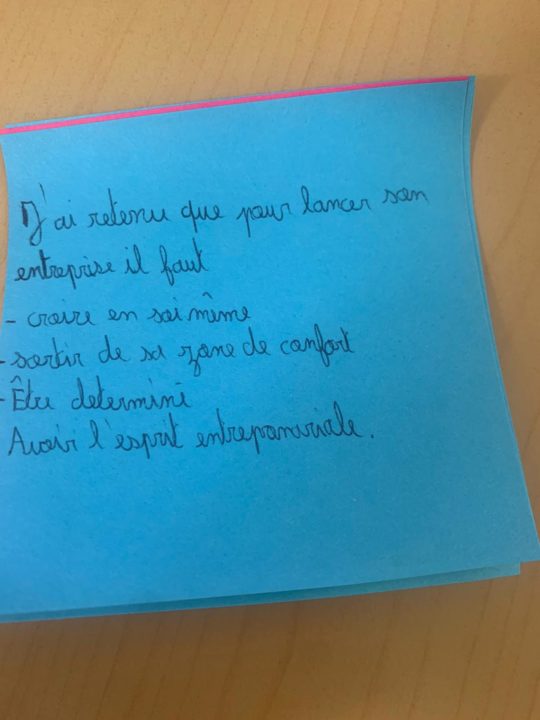 J'ai retenu que pour lancer son
entreprise il faut
- croire en soi même
- sortir de sa zone de confort
- Être determiné
Avoir l'esprit entreponariale.